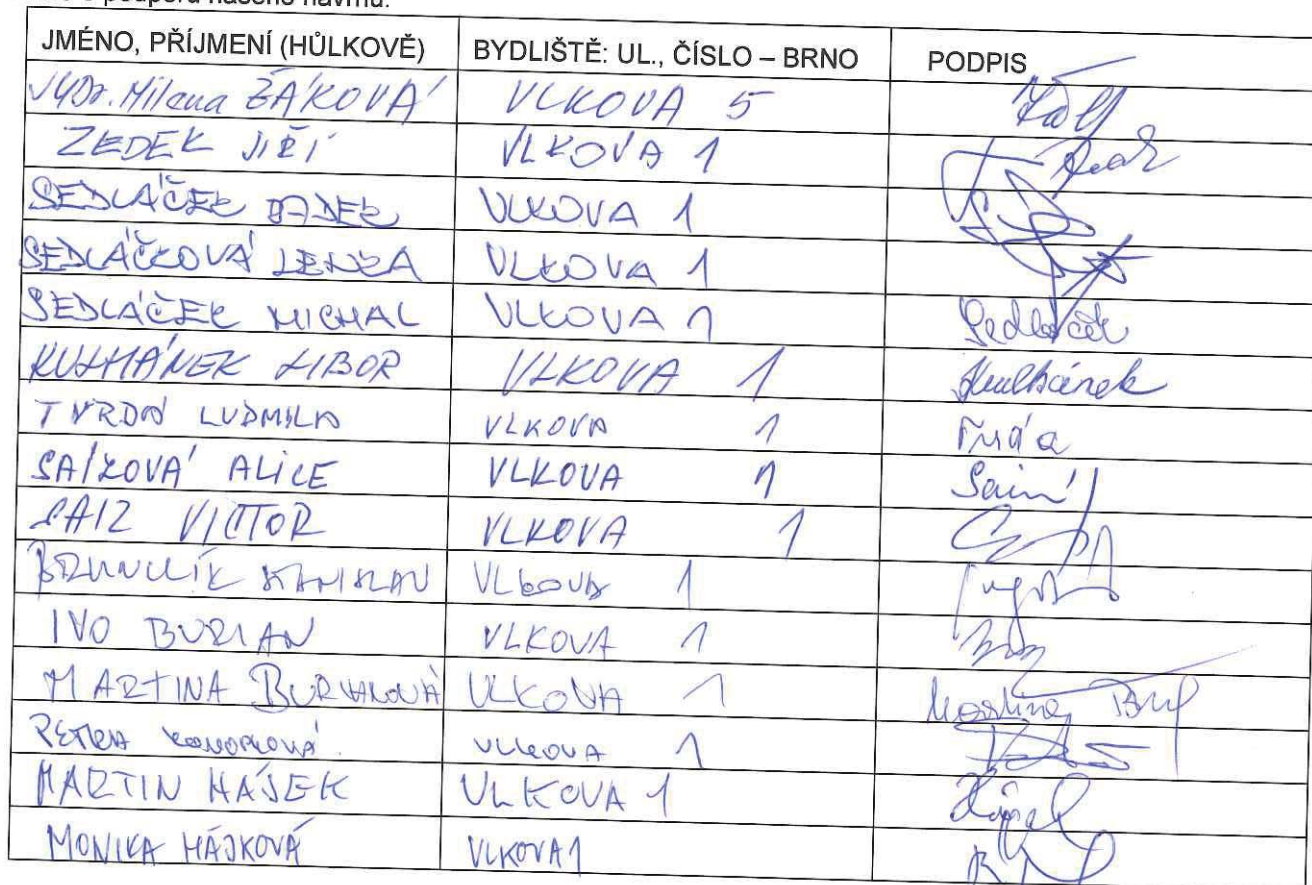 podporu našeho návrhu.
JMÉNO, PŘÍJMENÍ (HŮLKOVĚ) BYDLIŠTĚ: UL., ČÍSLO – BRNO PODPIS
JUDr. Milena ŽÁKOVÁ VLKOVA 5
ZEDEK JIŘÍ VLKOVA 1
SEDLÁČEK RADEK VLKOVA 1
SEDLÁČKOVÁ LENKA VLKOVA 1
SEDLÁČEK MICHAL VLKOVA 1 Sedláček
KULHÁNEK LIBOR VLKOVA 1 Kulhánek
TVRDÁ LUDMILA VLKOVA 1 Tvrdá
SAIZOVÁ ALICE VLKOVA 1
SAIZ VICTOR VLKOVA 1
VLKOVA 1
IVO BURIAN VLKOVA 1
MARTINA BURIANOVÁ VLKOVA 1 Martina
PETRA VLKOVA 1
MARTIN HÁJEK VLKOVA 1
MONIKA HÁJKOVÁ VLKOVA 1